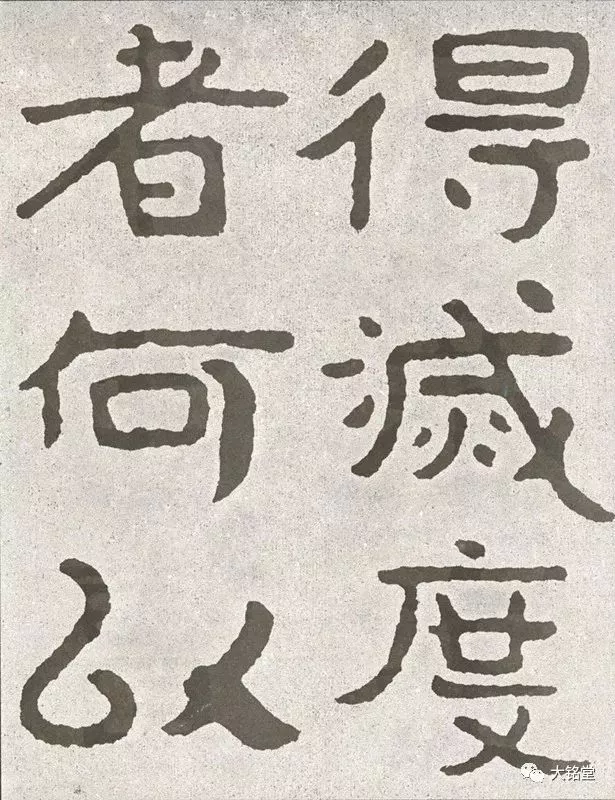 得滅度
者何以
大铭堂